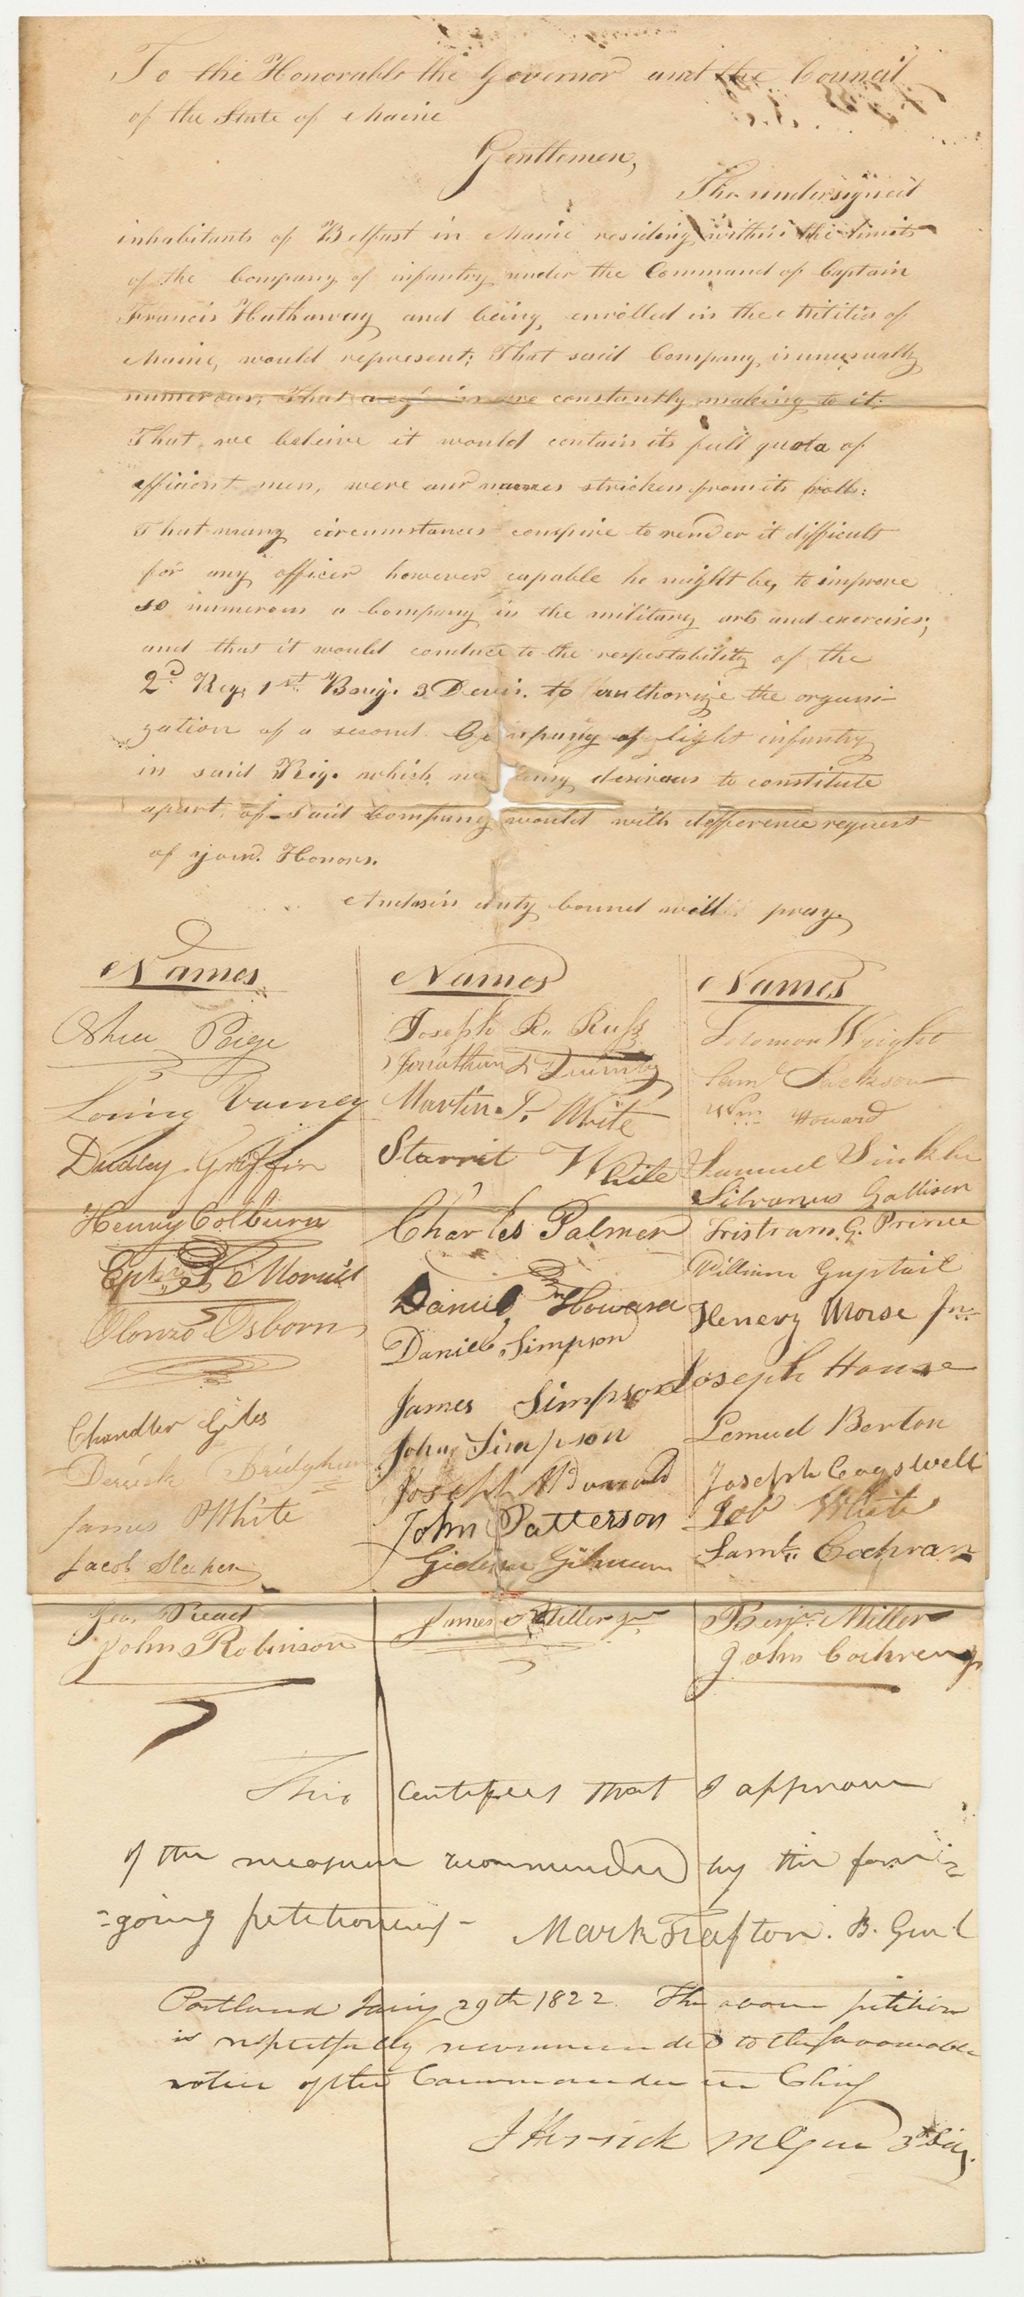 To the Honorable the Governor and the Council
of the State of Maine
Gentlemen,
The undersigned
inhabitants of Belfast in Maine residing within the limits
of the Company of infantry under the Command of Captain
Francis Hathaway and being enrolled in the Militia of
Maine, would represent; That said Company is unusually
numerous; That are constantly making to it;
That we beleive it would contain its full quota of
efficient men, were our names stricken from its rolls:
That many circumstances conspire to render it difficult
for any officer however capable he might be, to improve
so numerous a Company in the military arts and exercises;
and that it would conduce to the respectability of the
2d Reg. 1st Brig. 3 Devis. to authorize the organi-
zation of a second Company of light infantry
in said Reg. which we being desirous to constitute
apart of said Company would with defference request
of your Honors.
And as in duty bound will pray.
Names
Names
Names
Paige
Loring Varney
Dudley Griffin
Henry Colburn
Ephm K Morrill
Alonzo Osborn
Chandler Giles
Bridgham
James P White
Jacob Sleeper
Geo. Read
John Robinson
Joseph R. Russ
Jonathan Quimby
Martin P. White
Starrit White
Charles Palmer
Daniel Howard
Daniel Simpson
James Simpson
John Simpson
Joseph McDonald
John Patterson
Gideon Gilman
James Miller jur
Solomon Wright
Saml Jackson
Wm Howard
Samuel
Silvanus Gallison
Tristram G. Prince
William Guptail
Henery Morse Jnr
Joseph House
Lemuel Berton
Joseph Cogswell
Job White
Saml. Cochran
Benjn Miller
John Cochren
This certifies that I approve
of the measure recommended by the fore-
-going petitioners-
Mark Trafton. B. Genl
Portland Jany 29th 1822. The above petition
is respectfully recommended to the favourable
notice of the Commander in Chief
J Herrick M Gen 3d Div.